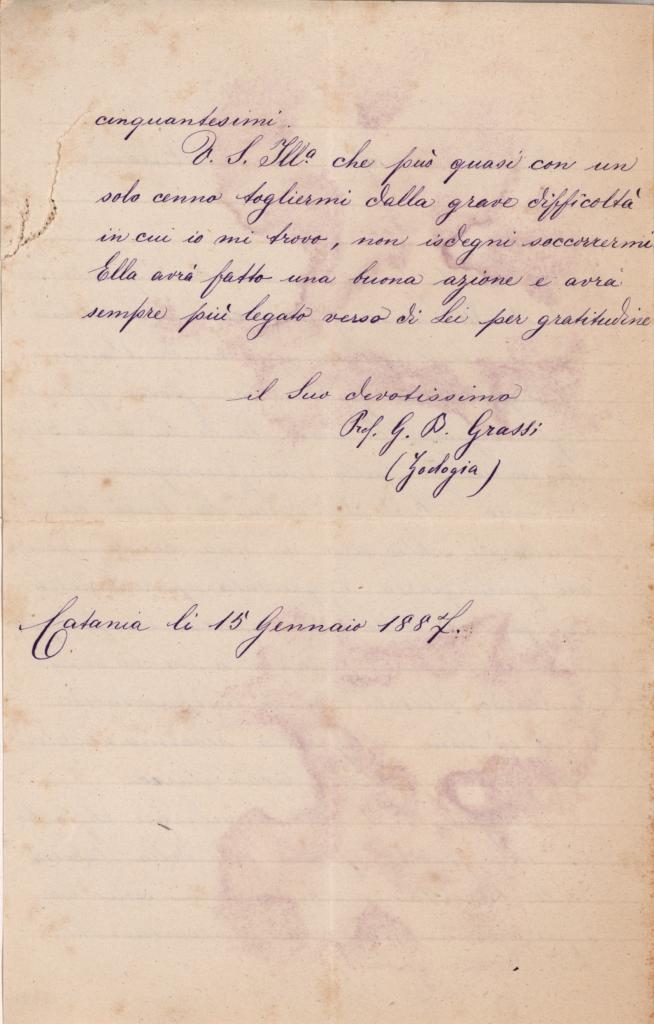 cinquantesimi.
V. S. Illª che può quasi con un
solo cenno togliermi dalla grave difficoltà
in cui io mi trovo, non isdegni soccorrermi
Ella avrà fatto una buona azione e avrà
sempre più legato verso di Lei per gratitudine
il Suo devotissimo
Prof. G. B. Grassi
(Zoologia)
Catania li 15 Gennaio 1887.